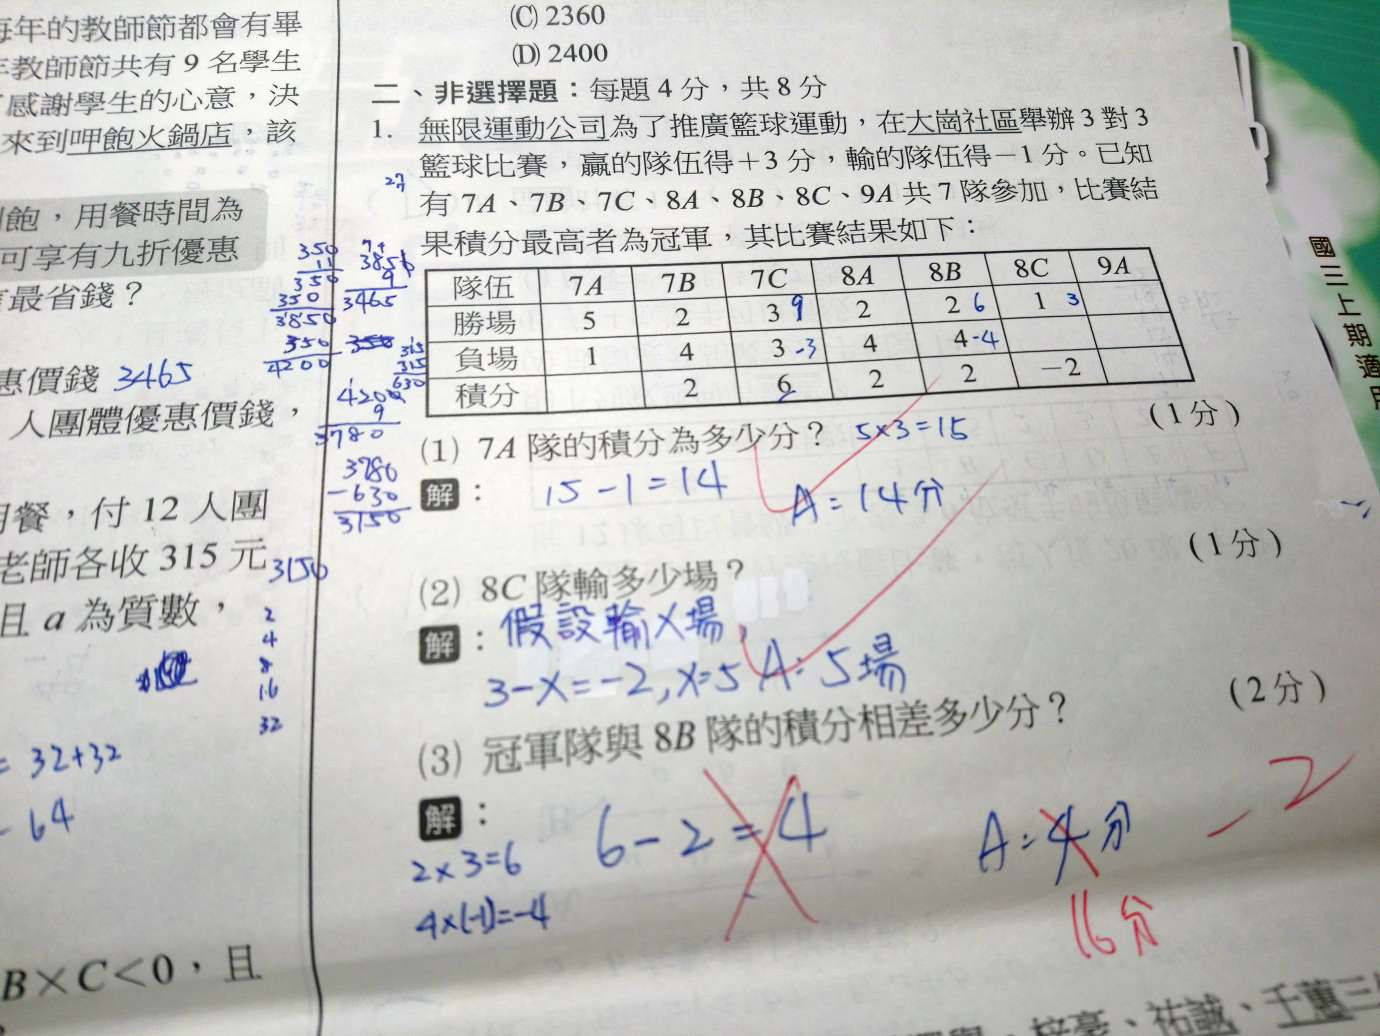 每年的教師節都會有畢
年教師節共有9名學生
了感謝學生的心意，決
來到呷飽火鍋店，該
飽，用餐時間為
可享有九折優惠
最省錢？
惠價錢 3465
人團體優惠價錢，
用餐，付12人團
老師各收315元 3150
且 a 為質數，
2
4
8
16
32
= 32+32
64
B×C<0，且
350
11
350
350
3850
350
4200
3850
9
3465
315
315
630
4200
9
3780
3780
-630
3150
(C) 2360
(D) 2400
二、非選擇題：每題4分，共8分
1. 無限運動公司為了推廣籃球運動，在大崗社區舉辦3對3
籃球比賽，贏的隊伍得＋3分，輸的隊伍得－1分。已知
27
有7A、7B、7C、8A、8B、8C、9A共7隊參加，比賽結
果積分最高者為冠軍，其比賽結果如下：
隊伍 7A 7B 7C 8A 8B 8C 9A
勝場 5 2 3 9 2 2 6 1 3
負場 1 4 3 -3 4 4 -4
積分 2 6 2 2 －2
(1) 7A隊的積分為多少分？ 5×3=15 (1分)
解： 15-1=14 A=14分
(2) 8C隊輸多少場？ (1分)
解： 假設輸X場，
3-X=-2, X=5 A: 5場
(3) 冠軍隊與8B隊的積分相差多少分？ (2分)
解：
6-2=4 A=4分 -2
2×3=6
4×(-1)=-4
16分
國三上期適用
梓豪、祐誠、千蕙三